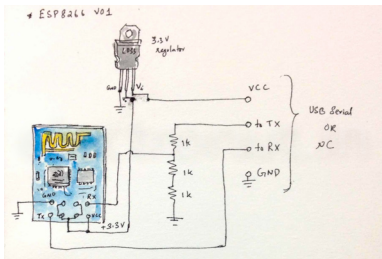 * ESP8266 V01
3.3V
Regulator
VCC
to TX
to RX
GND
USB Serial
OR
NC
1k
1k
1k
GND
RX
TX
VCC
+3.3V